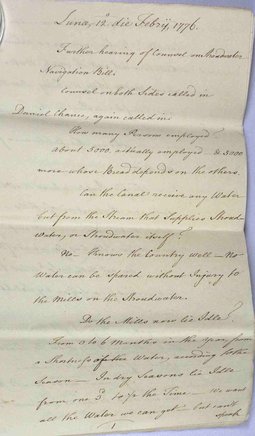 Lunæ, 12º die Febrij, 1776.
Further hearing of Counsel on Stroudwater
Navigation Bill.
Counsel on both Sides called in
Daniel Chance, again called in:
How many Persons employed?
about 5000 actually employed & 5000
more whose Bread depends on the others.
Can the Canal receive any Water
but from the Stream that Supplies Stroud-
Water, or Stroudwater itself?
No – Knows the Country well – No
Water can be spared without Injury to
the Mills on the Stroudwater.
Do the Mills now lie Idle?
From 0 to 6 Months in the Year from
a Shortness of the Water, according to the
Season – In dry Seasons lie Idle
from one 3d. to the Time – We want
all the Water we can get – but can't
speak